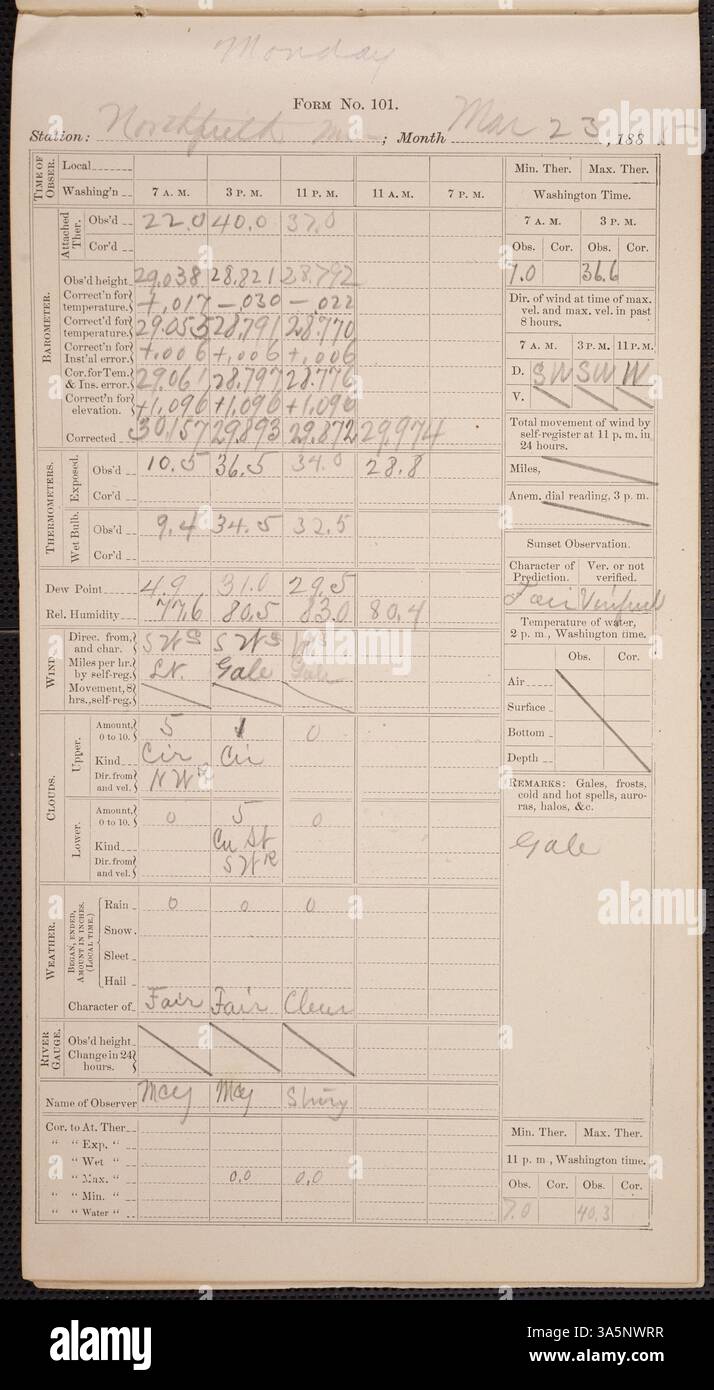 Monday
FORM No. 101.
Station: Northfield Min; Month Mar 23, 1885
TIME OF OBSER. Local
Washing'n 7 A. M. 3 P. M. 11 P. M. 11 A. M. 7 P. M.
Attached Ther. Obs'd 22.0 40.0 37.0
Cor'd
BAROMETER.
Obs'd height 29.038 28.821 28.792
Correct'n for temperature. +.017 -.030 -.022
Correct'd for temperature. 29.055 28.791 28.770
Correct'n for Inst'al error. +.006 +.006 +.006
Cor. for Tem. & Ins. error. 29.061 28.797 28.776
Correct'n for elevation. +1.096 +1.096 +1.096
Corrected 30.157 29.893 29.872 29.974
THERMOMETERS.
Exposed. Obs'd 10.5 36.5 34.0 28.8
Cor'd
Wet Bulb. Obs'd 9.4 34.5 32.5
Cor'd
Dew Point 4.9 31.0 29.5
Rel. Humidity 77.6 80.5 83.0 80.4
WIND
Direc. from, and char. SW S SW S W S
Miles per hr. by self-reg. Lt. Gale Gale
Movement, 8 hrs., self-reg.
CLOUDS.
Upper. Amount, 0 to 10. 5 1 0
Kind Cir Cir
Dir. from and vel. NW
Lower. Amount, 0 to 10. 0 5 0
Kind Cu St
Dir. from and vel. SW R
WEATHER.
BEGAN, ENDED, AMOUNT IN INCHES. (LOCAL TIME.)
Rain 0 0 0
Snow
Sleet
Hail
Character of Fair Fair Clear
RIVER GAUGE.
Obs'd height
Change in 24 hours.
Name of Observer May May
Cor. to At. Ther.
" " Exp. "
" " Wet "
" " Max. " 0.0 0.0
" " Min. "
" " Water "
Min. Ther. Max. Ther.
Washington Time.
7 A. M. 3 P. M.
Obs. Cor. Obs. Cor.
7.0 36.6
Dir. of wind at time of max. vel. and max. vel. in past 8 hours.
7 A. M. 3 P. M. 11 P. M.
D. SW SW W
V.
Total movement of wind by self-register at 11 p. m. in 24 hours.
Miles,
Anem. dial reading, 3 p. m.
Sunset Observation.
Character of Prediction. Ver. or not verified.
Fair Verified
Temperature of water, 2 p. m., Washington time.
Obs. Cor.
Air
Surface
Bottom
Depth
REMARKS: Gales, frosts, cold and hot spells, auroras, halos, &c.
Gale
Min. Ther. Max. Ther.
11 p. m., Washington time.
Obs. Cor. Obs. Cor.
7.0 40.3
alamy
Image ID: 3A5NWRR
www.alamy.com